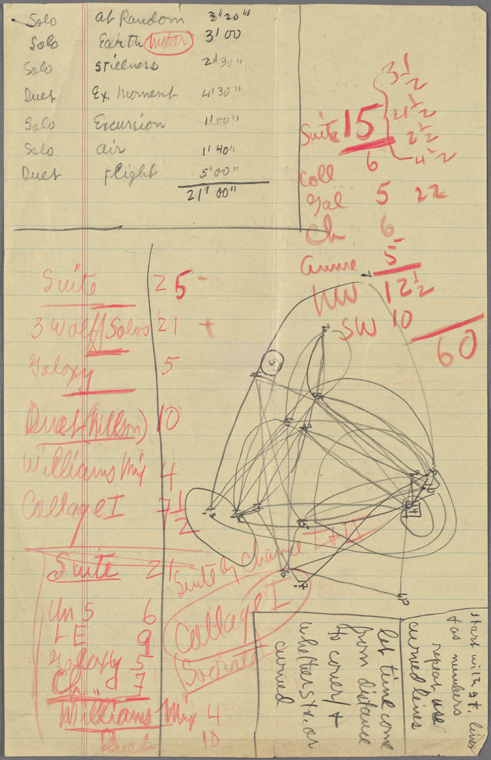 Solo at Random 3'20"
Solo Earth Motor 3'00
Solo Stillness 2'30"
Duet Ex. Moment 4'30"
Solo Excursion 1'00"
Solo air 1'40"
Duet flight 5'00"
21'00"
Suite 15
3 1/2
2 1/2
4 1/2
6
Coll
Gal 5 22
Ch 6
5
12 1/2
SW 10
60
Suite 25
3 Wolff Solos 21 +
Galaxy 5
Duet 10
Williams Mix 4
Collage I 7 1/2
Suite by Chance I + II
Collage I
Socrate
Suite 21
Un S 6
LE 9
Galaxy 5
Ch 7
Williams Mix 4
10
Start with st. lines
as numbers
repeat use
curved lines
let time come
from distance
to cover / +
whether st. or
curved